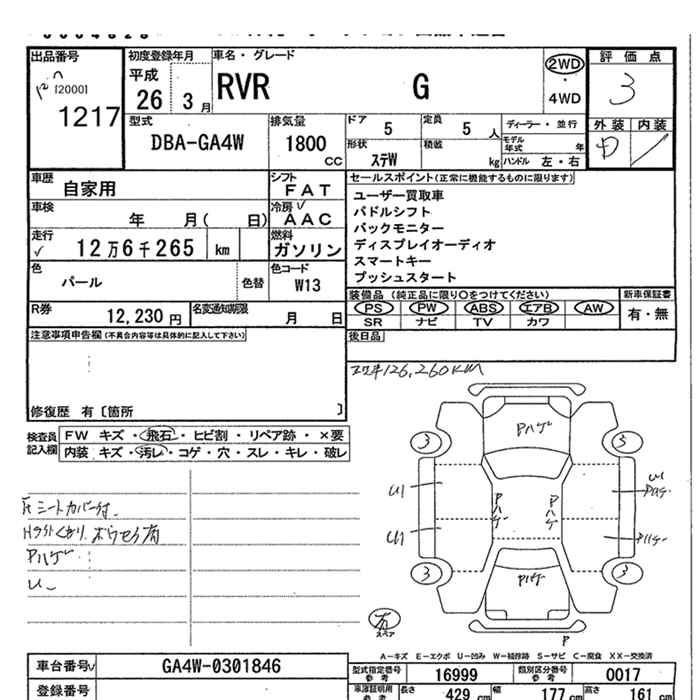 出品番号
[2000]
1217
初度登録年月
平成
26 3 月
車名・グレード
RVR G
2WD
・
4WD
評価点
3
外装 内装
D
型式
DBA-GA4W
排気量
1800
CC
ドア 5
定員 5 人
ディーラー・並行
形状
ステW
積載 kg
モデル年式 年
ハンドル 左・右
車歴
自家用
シフト
FAT
車検
年 月( 日)
冷房
AAC
走行
12万6千265 km
燃料
ガソリン
色
パール
色替
色コード
W13
R券
12,230 円
名変通知期限
月 日
セールスポイント(正常に機能するものに限ります)
ユーザー買取車
パドルシフト
バックモニター
ディスプレイオーディオ
スマートキー
プッシュスタート
装備品(純正品に限り○をつけてください)
新車保証書
PS PW ABS エアB AW
SR ナビ TV カワ
有・無
後日品
注意事項申告欄(不具合内容等は具体的に記入して下さい)
修復歴 有〔箇所 〕
検査員記入欄
FW キズ・飛石・ヒビ割・リペア跡・×要
内装 キズ・汚レ・コゲ・穴・スレ・キレ・破レ
126,260KM
シートカバー付
Pハゲ
U
Pハゲ
3 3
U1
U1
Pハゲ
Pハゲ
U1
Pハゲ
Pハゲ
3 3
Pハゲ
スペア
P
A-キズ E-エクボ U-凹み W-補修跡 S-サビ C-腐食 XX-交換済
車台番号
GA4W-0301846
登録番号
型式指定番号
参考
16999
類別区分番号
参考
0017
車庫証明用
参考
長さ 429 cm
幅 177 cm
高さ 161 cm